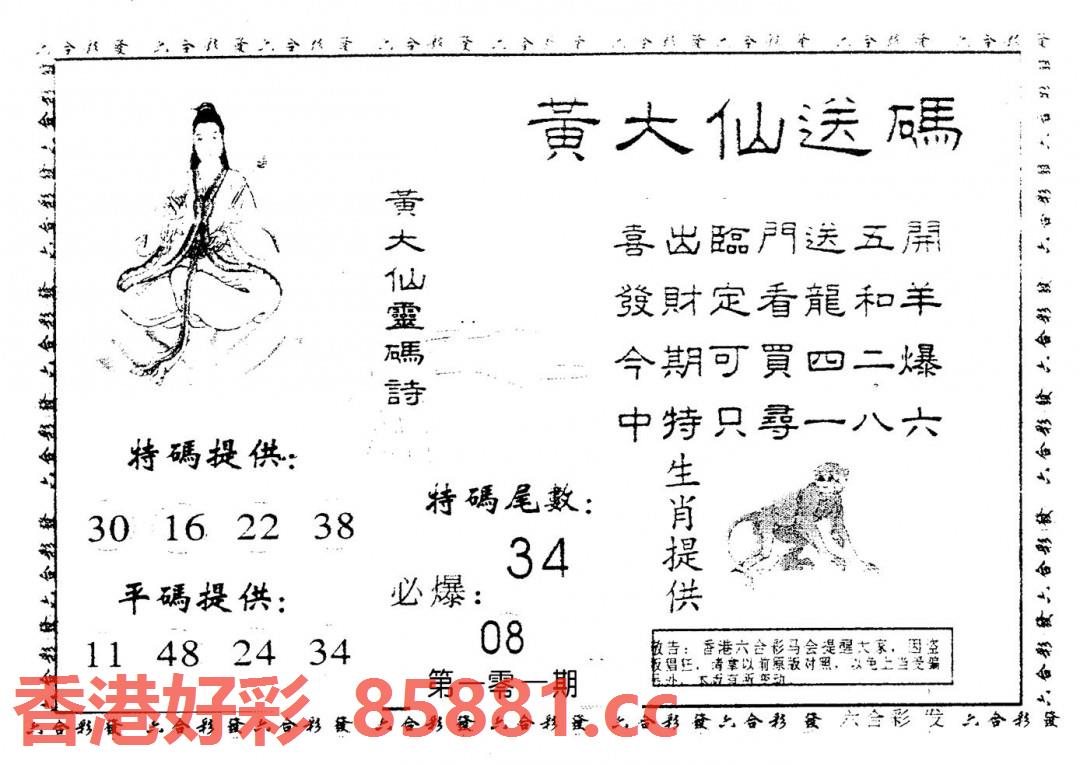 六合彩發 六合彩發 六合彩發 六合彩發 六合彩發 六合彩發 六合彩發 六合彩發 六合彩發
黃大仙送碼
黃大仙靈碼詩
喜出臨門送五開
發財定看龍和羊
今期可買四二爆
中特只尋一八六
特碼提供：
30 16 22 38
平碼提供：
11 48 24 34
特碼尾數：
34
必爆：
08
第一零一期
生肖提供
敬告：香港六合彩马会提醒大家，因盗
版猖狂，请拿以前原版对照，以免上当受骗
香港好彩 85881.cc
六合彩發 六合彩發 六合彩發 六合彩發 六合彩發 六合彩發 六合彩發 六合彩发 六合彩發